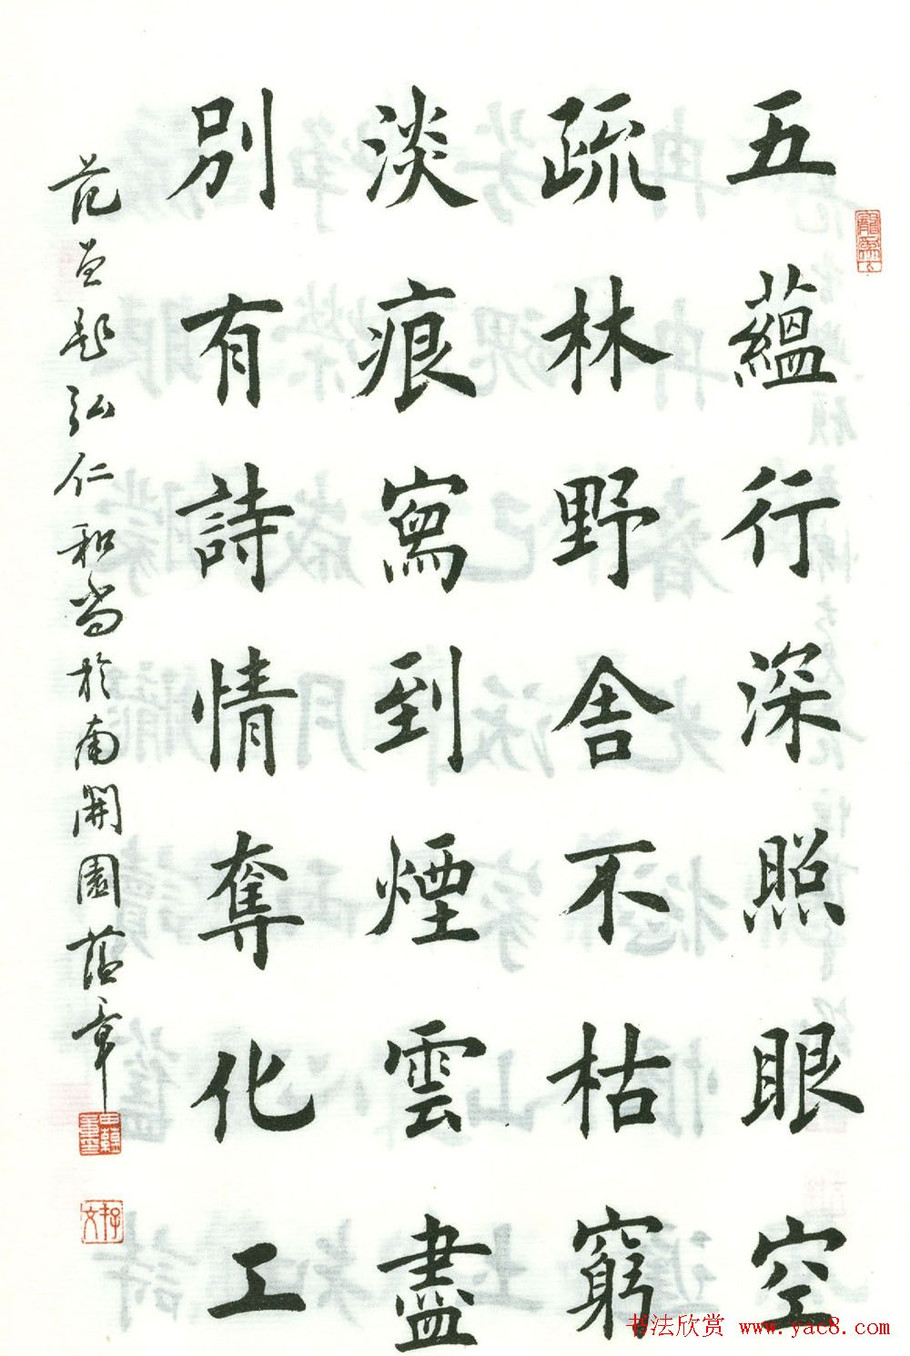 五蘊行深照眼空
疏林野舍不枯窮
淡痕寫到煙雲盡
別有詩情奪化工
范曾題弘仁和尚於南開園蕴章
书法欣赏 www.yac8.com